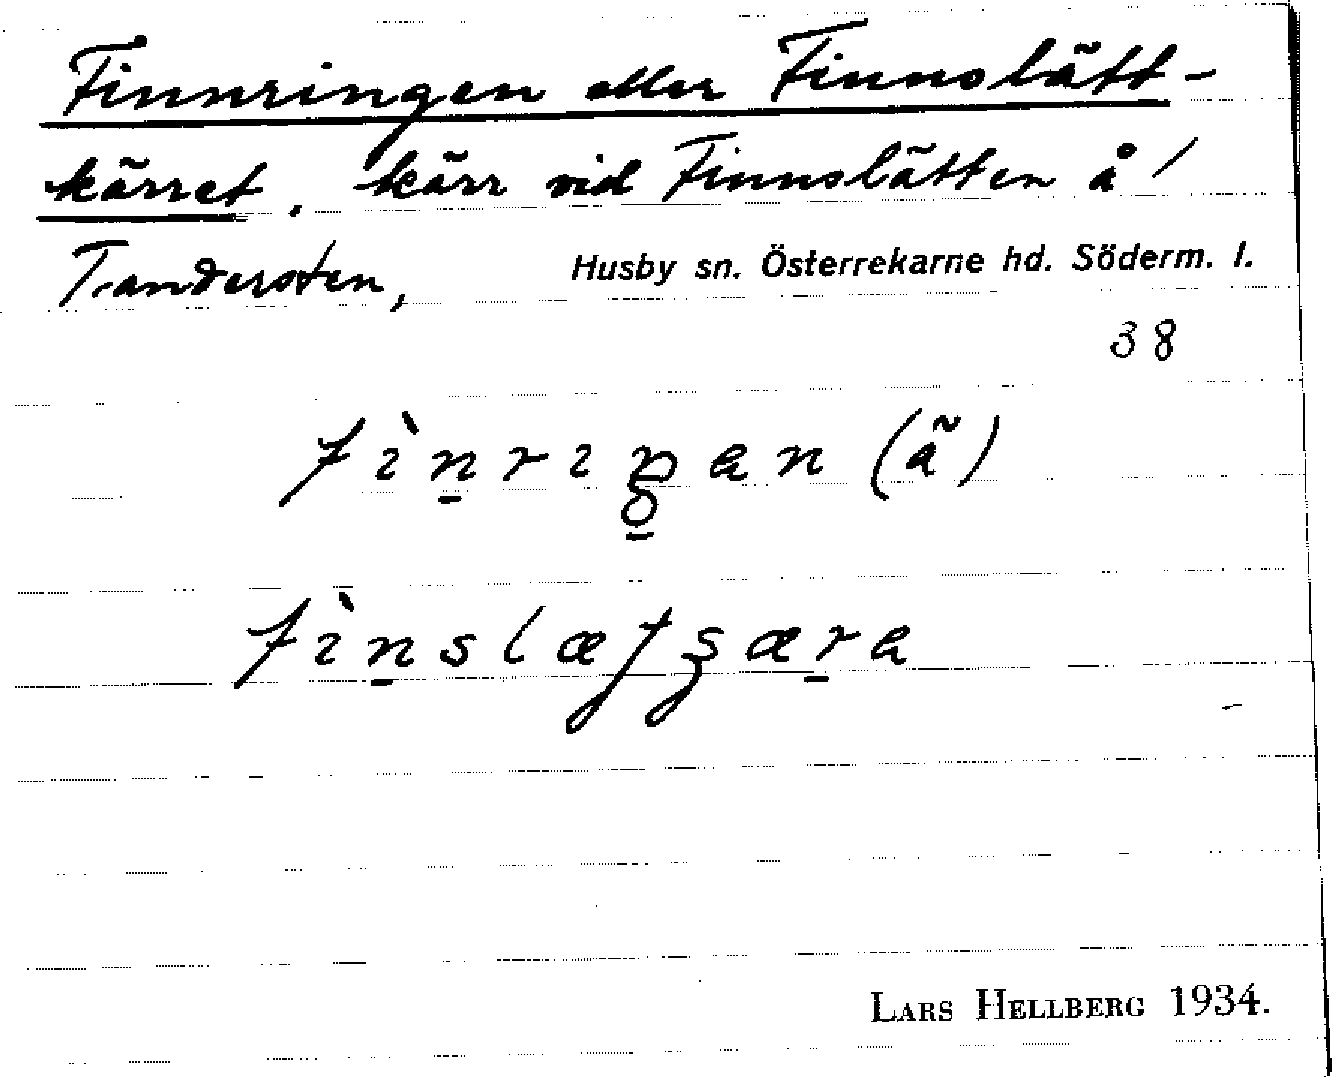 Finnringen eller Finnslätt-
kärret, kärr vid Finnslätten å /
Tandersten, Husby sn. Österrekarne hd. Söderm. l.
38
fìn̲riŋ̲en (ä)
fìn̲slætsær̲e
LARS HELLBERG 1934.